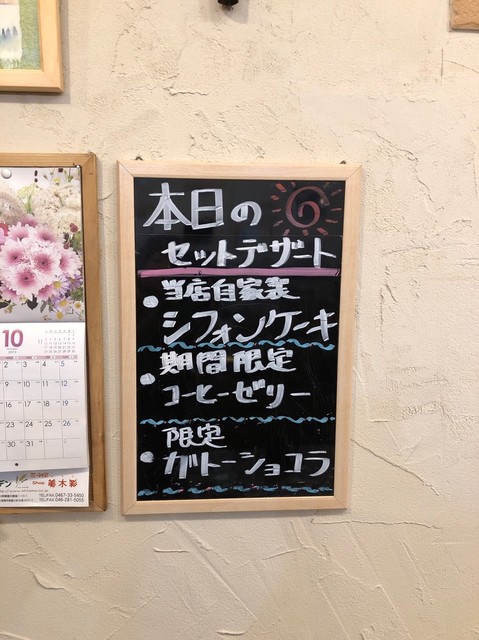 本日の
セットデザート
当店自家製
シフォンケーキ
期間限定
コーヒーゼリー
限定
ガトーショコラ
10
2 3 4 5
9 10 11 12
16 17 18 19
23 24 25 26
30 31
デン
Shop
TEL/FAX 0467-33-5450
TEL/FAX 046-281-5055